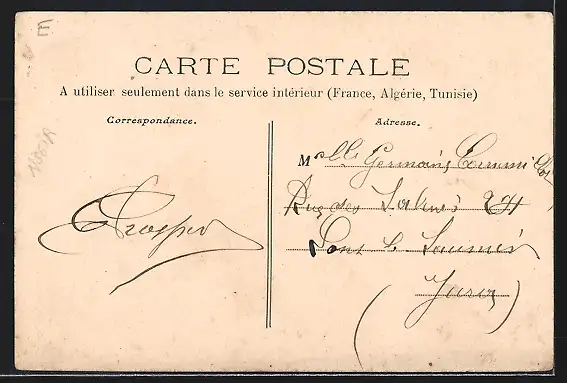 E
CARTE POSTALE
A utiliser seulement dans le service intérieur (France, Algérie, Tunisie)
Correspondance.
Adresse.
Prosper
Mlle Germaine
Rue des Salines 24
Lons le Saunier
(Jura)